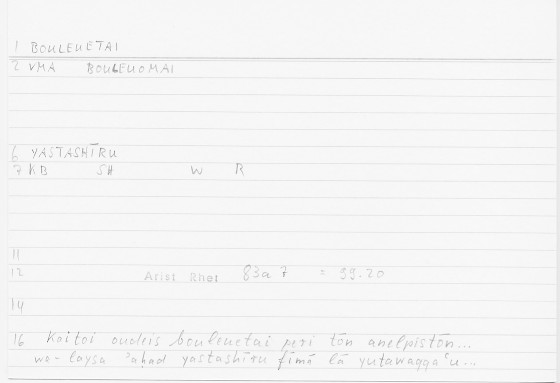 1 BOULEUETAI
2 VMA BOULEUOMAI
6 YASTASHĪRU
7 KB SH W R
11
12 Arist Rhet 83a7 = 99.20
14
16 Kaitoi oudeis bouleuetai peri tōn anelpistōn...
wa-laysa ʾaḥad yastashīru fīmā lā yutawaqqaʿu...